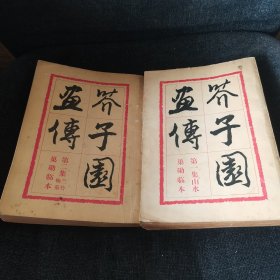 芥子園
畫傳
第二集 蘭竹梅菊
巢勛臨本
芥子園
畫傳
第一集山水
巢勛臨本